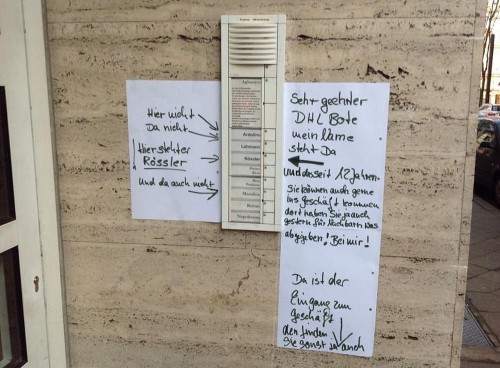 Hier nicht
Da nicht
Hier steht er
Rössler
Und da auch nicht
Antolini
Lehmann
Rössler
Sehr geehrter
DHL Bote
mein Name
steht Da
und das seit 12 Jahren.
Sie können auch gerne
ins Geschäft kommen
dort haben Sie ja auch
gestern für Nachbarn was
abgegeben! Bei mir!
Da ist der
Eingang zum
Geschäft
den finden
Sie sonst ja auch